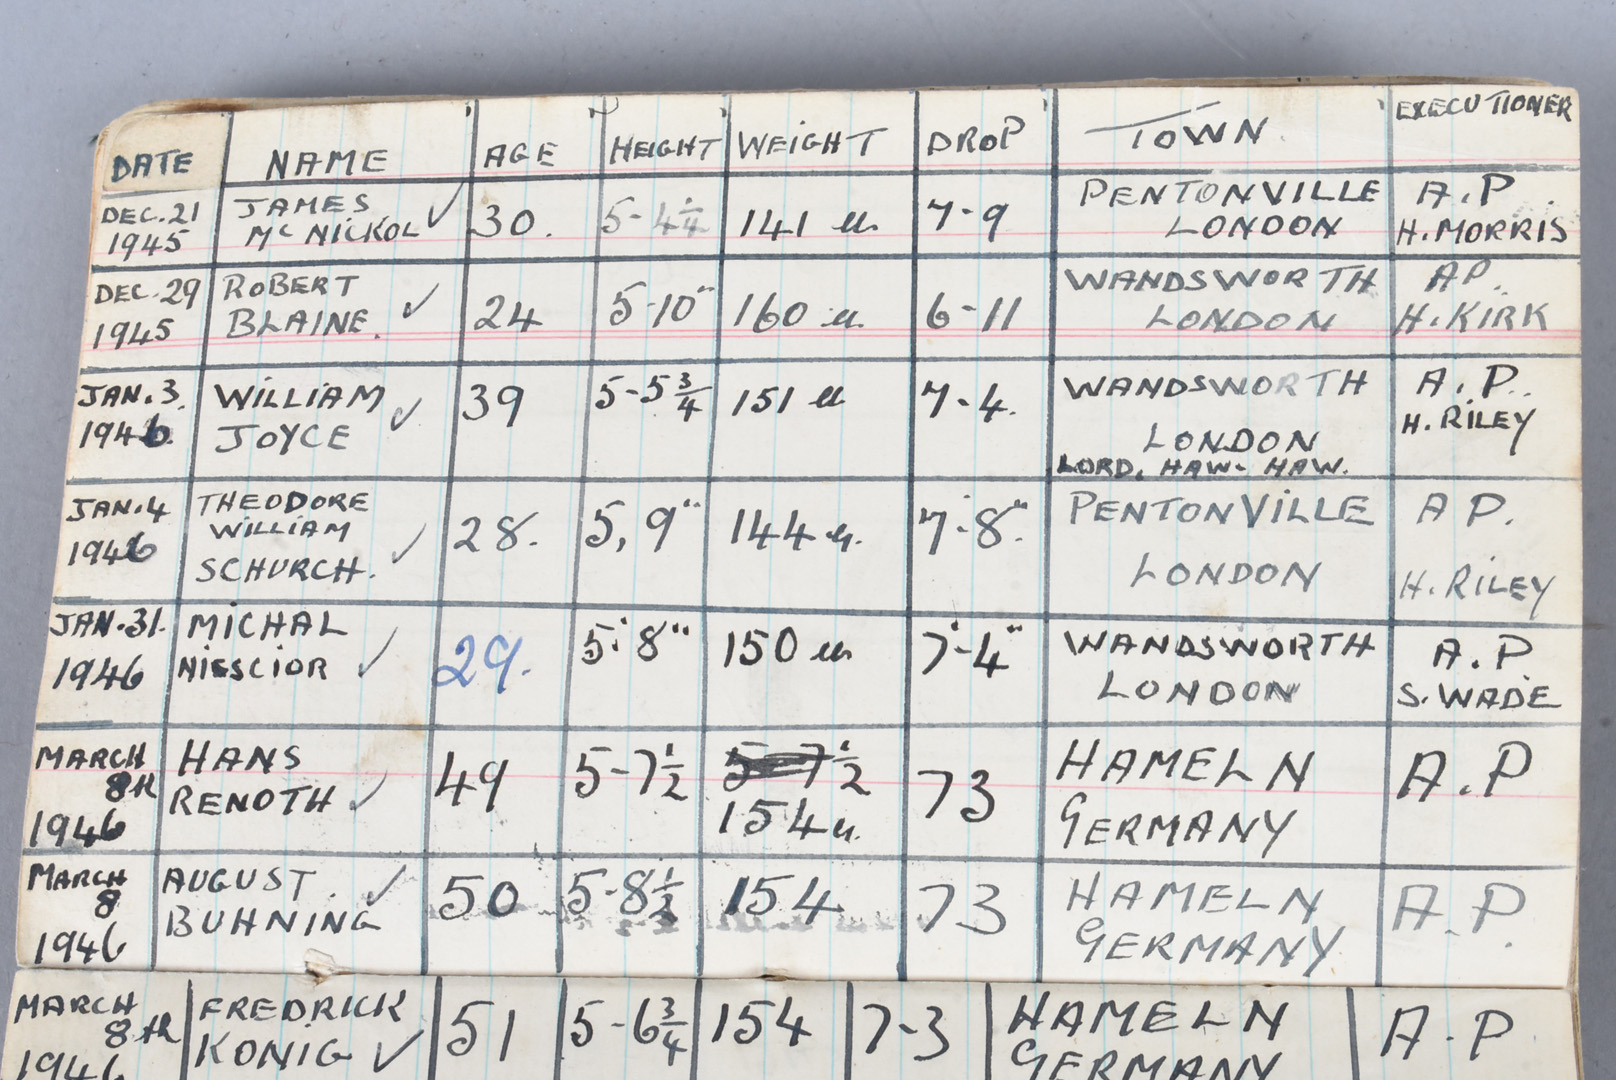 DATE NAME AGE HEIGHT WEIGHT DROP TOWN EXECUTIONER
DEC. 21 JAMES 30. 5-4¼ 141 lbs 7-9 PENTONVILLE A.P.
1945 Mc NICKOL LONDON H. MORRIS
DEC. 29 ROBERT 24 5-10" 160 lbs. 6-11 WANDSWORTH AP.
1945 BLAINE. LONDON H. KIRK
JAN. 3. WILLIAM 39 5-5¾ 151 lbs 7-4. WANDSWORTH A.P.
1946. JOYCE LONDON H. RILEY
LORD, HAW- HAW.
JAN. 4 THEODORE 28. 5, 9" 144 lbs. 7'-8" PENTONVILLE A P.
1946 WILLIAM
SCHURCH. LONDON H. RILEY
JAN. 31. MICHAL 29. 5'8" 150 lbs 7'-4" WANDSWORTH A.P
1946 NIESCIOR LONDON S. WADE
MARCH HANS 49 5-7½ 5-7½ 73 HAMELN A.P
8th RENOTH 154 lbs. GERMANY
1946
MARCH AUGUST. 50 5-8½ 154 73 HAMELN A.P.
8 BUHNING GERMANY
1946
MARCH FREDRICK 51 5-6¾ 154 7-3 HAMELN A.P
8th KONIG GERMANY
1946